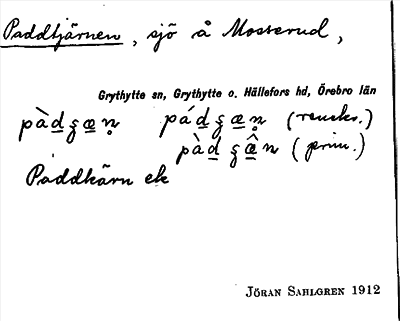 Paddtjärnen, sjö å Mosserud,
Grythytte sn, Grythytte o. Hällefors hd, Örebro län
pàdʒæn̥ pádʒæn̥ (
pàdʒæ̂n (prim.)
Paddkärn ek
JÖRAN SAHLGREN 1912